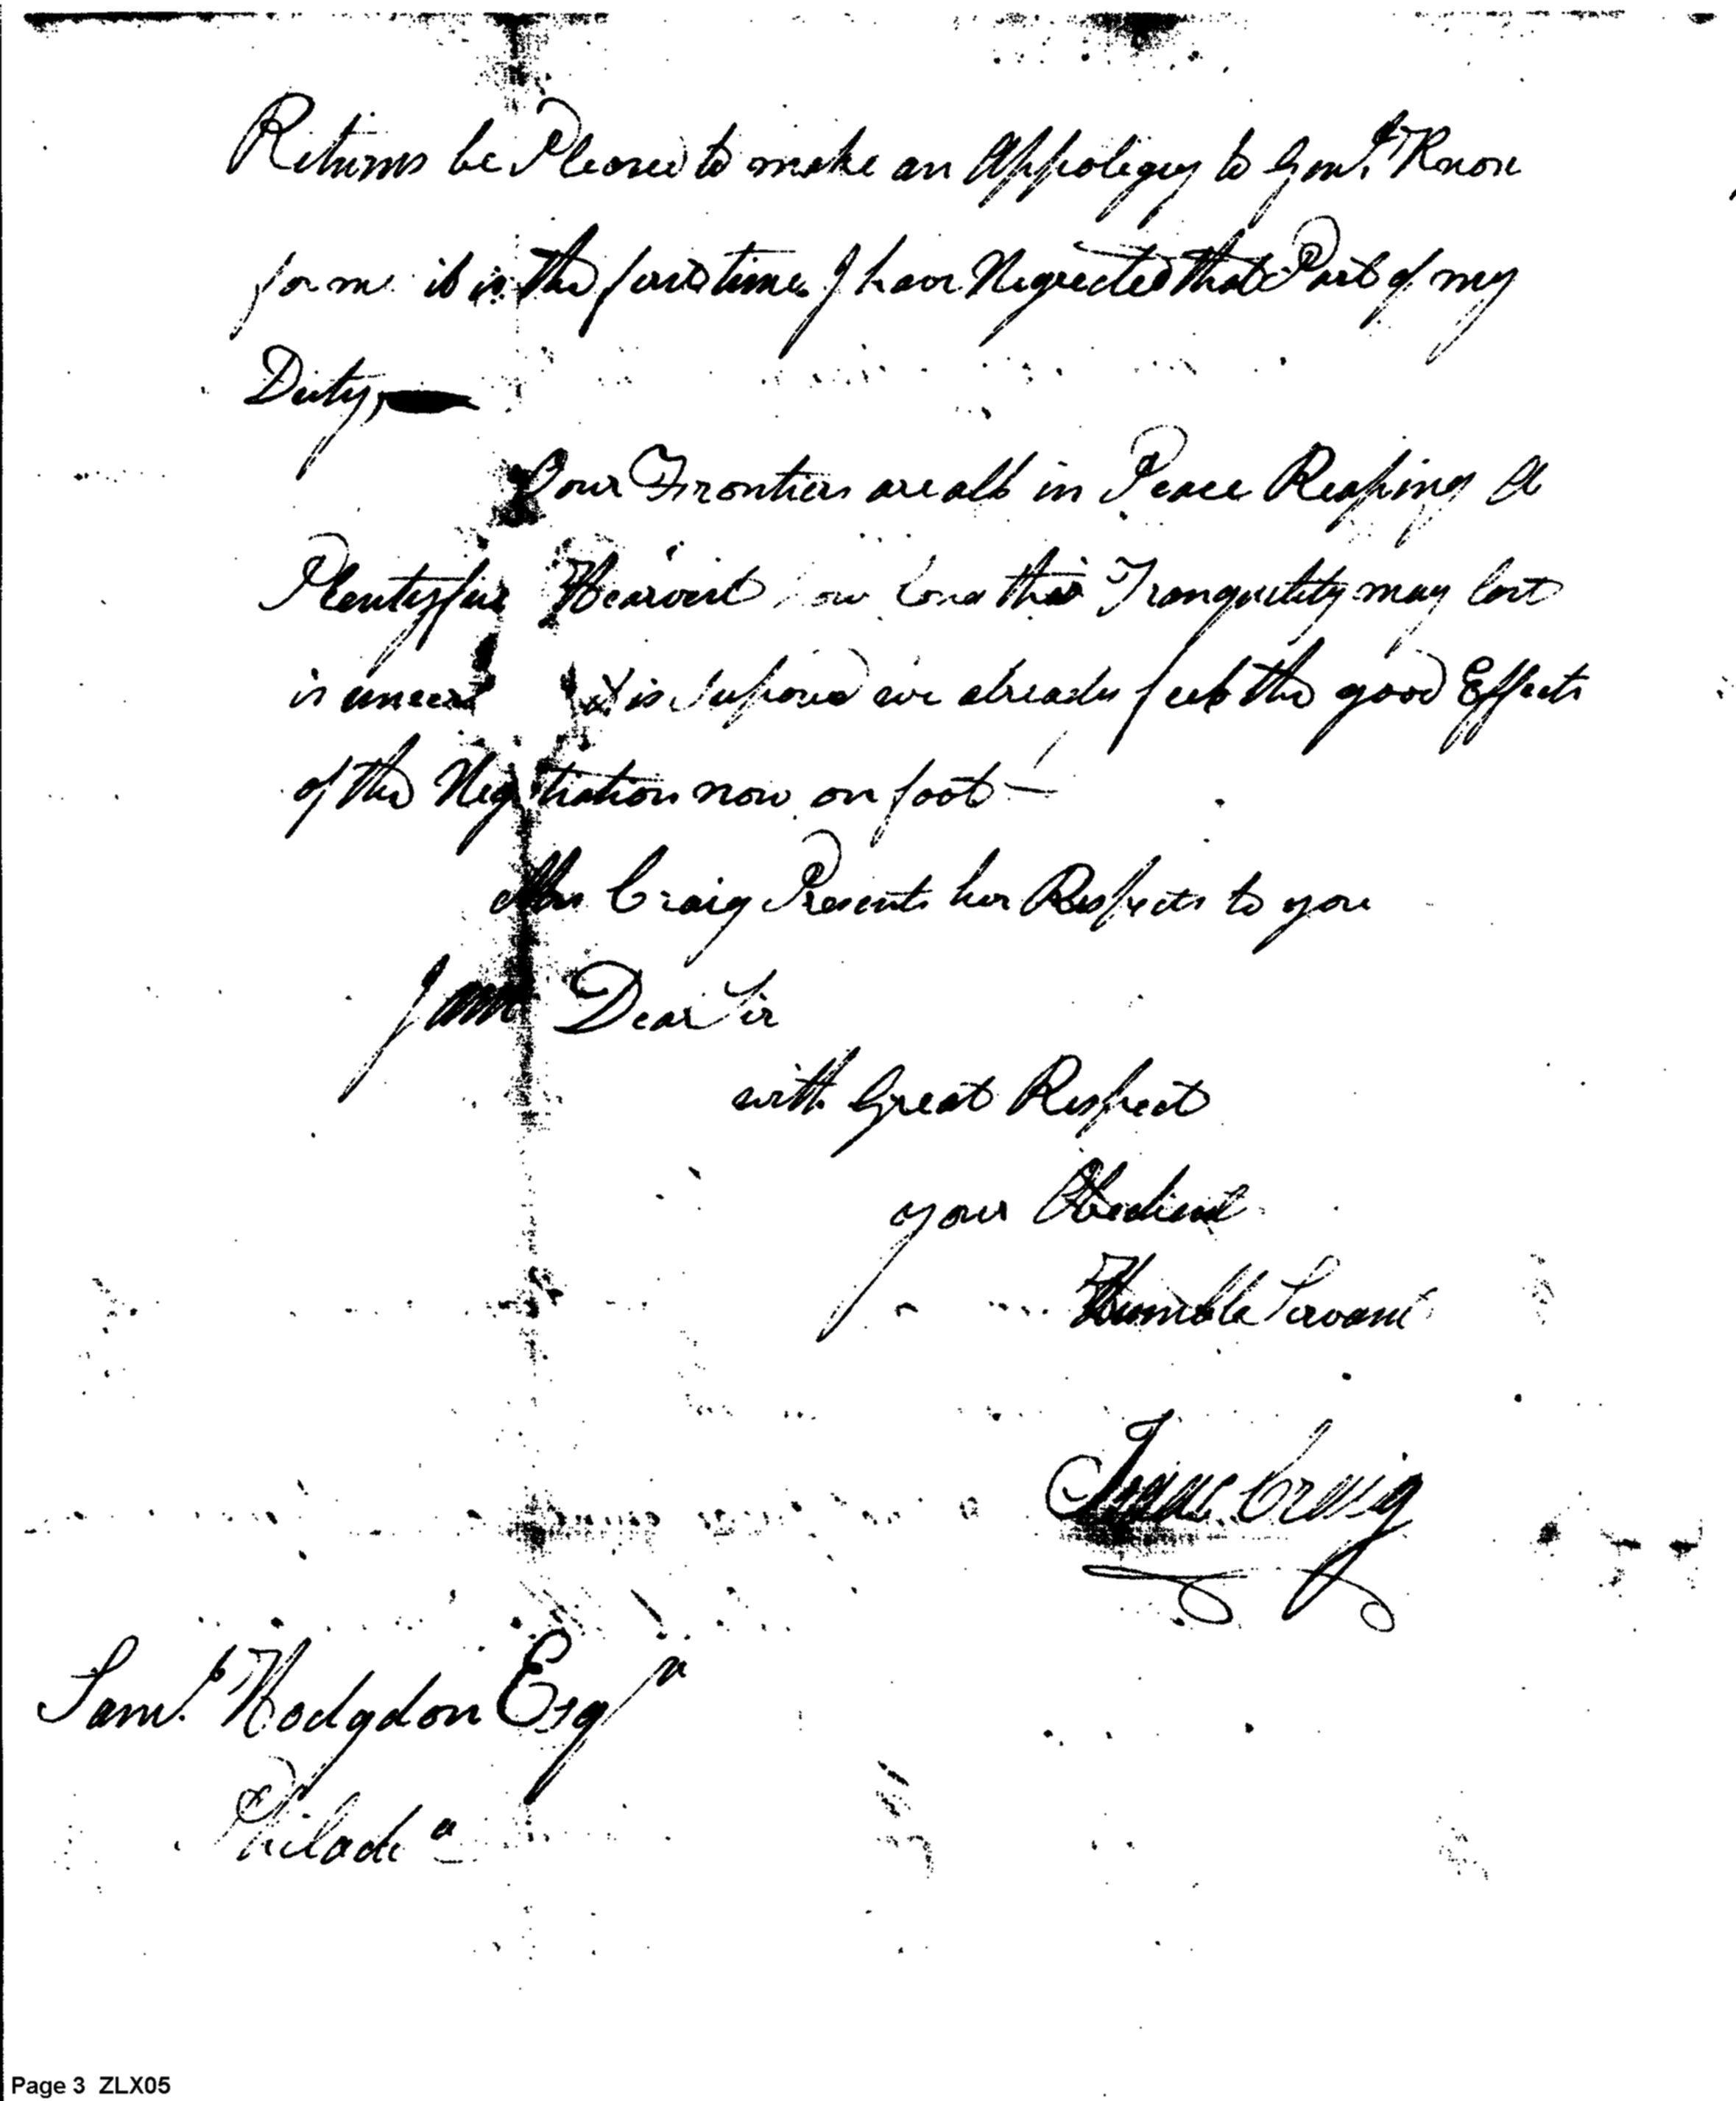 Returns be Pleased to make an Appoligy to Genl. Knox
for me it is the first time I have Neglected that Part of my
Duty,
our Frontiers are all in Peace Reaping a
Plentyfull Hearvest how long this Tranquility may last
is uncert it is Suposed we already feel the good Effects
of the Negotiation now on foot —
Mrs Craig Presents her Respects to you
I am Dear Sir
with Great Respect
your Obedient
Humble Servant
Isaac Craig
Saml. Hodgdon Esqr
Philada
Page 3 ZLX05